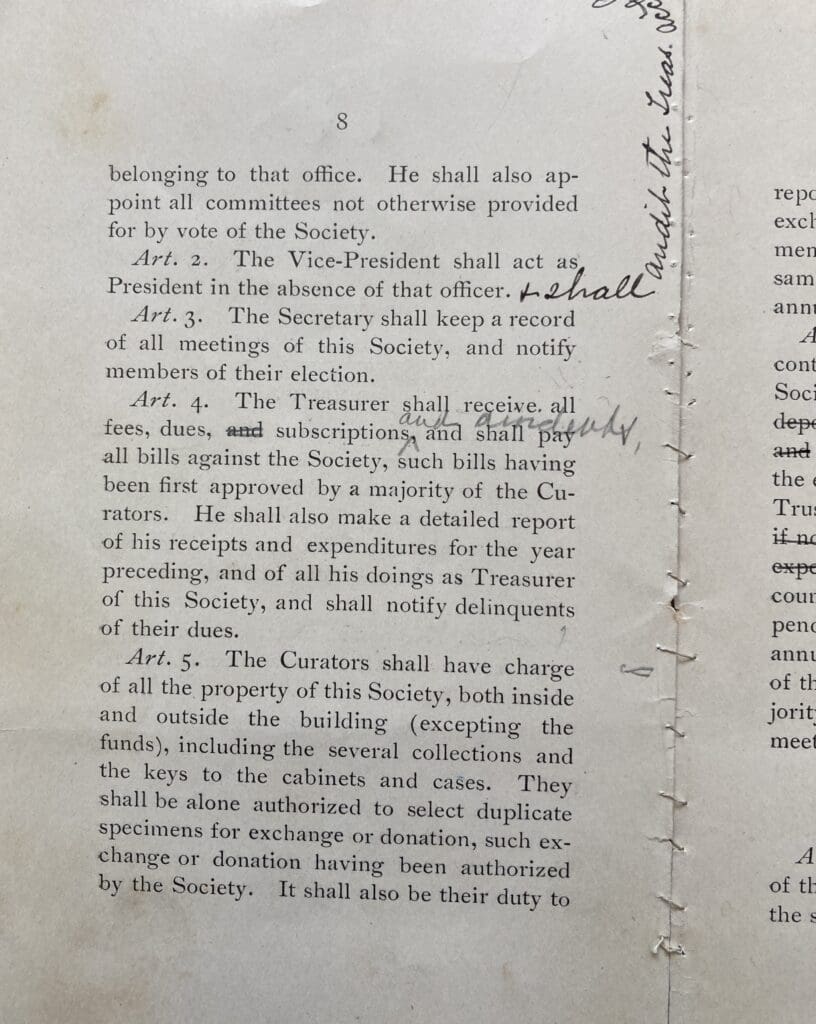 8
belonging to that office. He shall also ap-
point all committees not otherwise provided
for by vote of the Society.
Art. 2. The Vice-President shall act as
President in the absence of that officer. & shall
audit the Treas.
Art. 3. The Secretary shall keep a record
of all meetings of this Society, and notify
members of their election.
Art. 4. The Treasurer shall receive. all
and dividends,
fees, dues, and subscriptions, and shall pay
all bills against the Society, such bills having
been first approved by a majority of the Cu-
rators. He shall also make a detailed report
of his receipts and expenditures for the year
preceding, and of all his doings as Treasurer
of this Society, and shall notify delinquents
of their dues.
Art. 5. The Curators shall have charge
of all the property of this Society, both inside
and outside the building (excepting the
funds), including the several collections and
the keys to the cabinets and cases. They
shall be alone authorized to select duplicate
specimens for exchange or donation, such ex-
change or donation having been authorized
by the Society. It shall also be their duty to
repo
exch
mem
sam
annu
A
cont
Soci
depo
and
the e
Trus
if no
expe
coun
pend
annu
of th
jority
meet
A
of th
the s